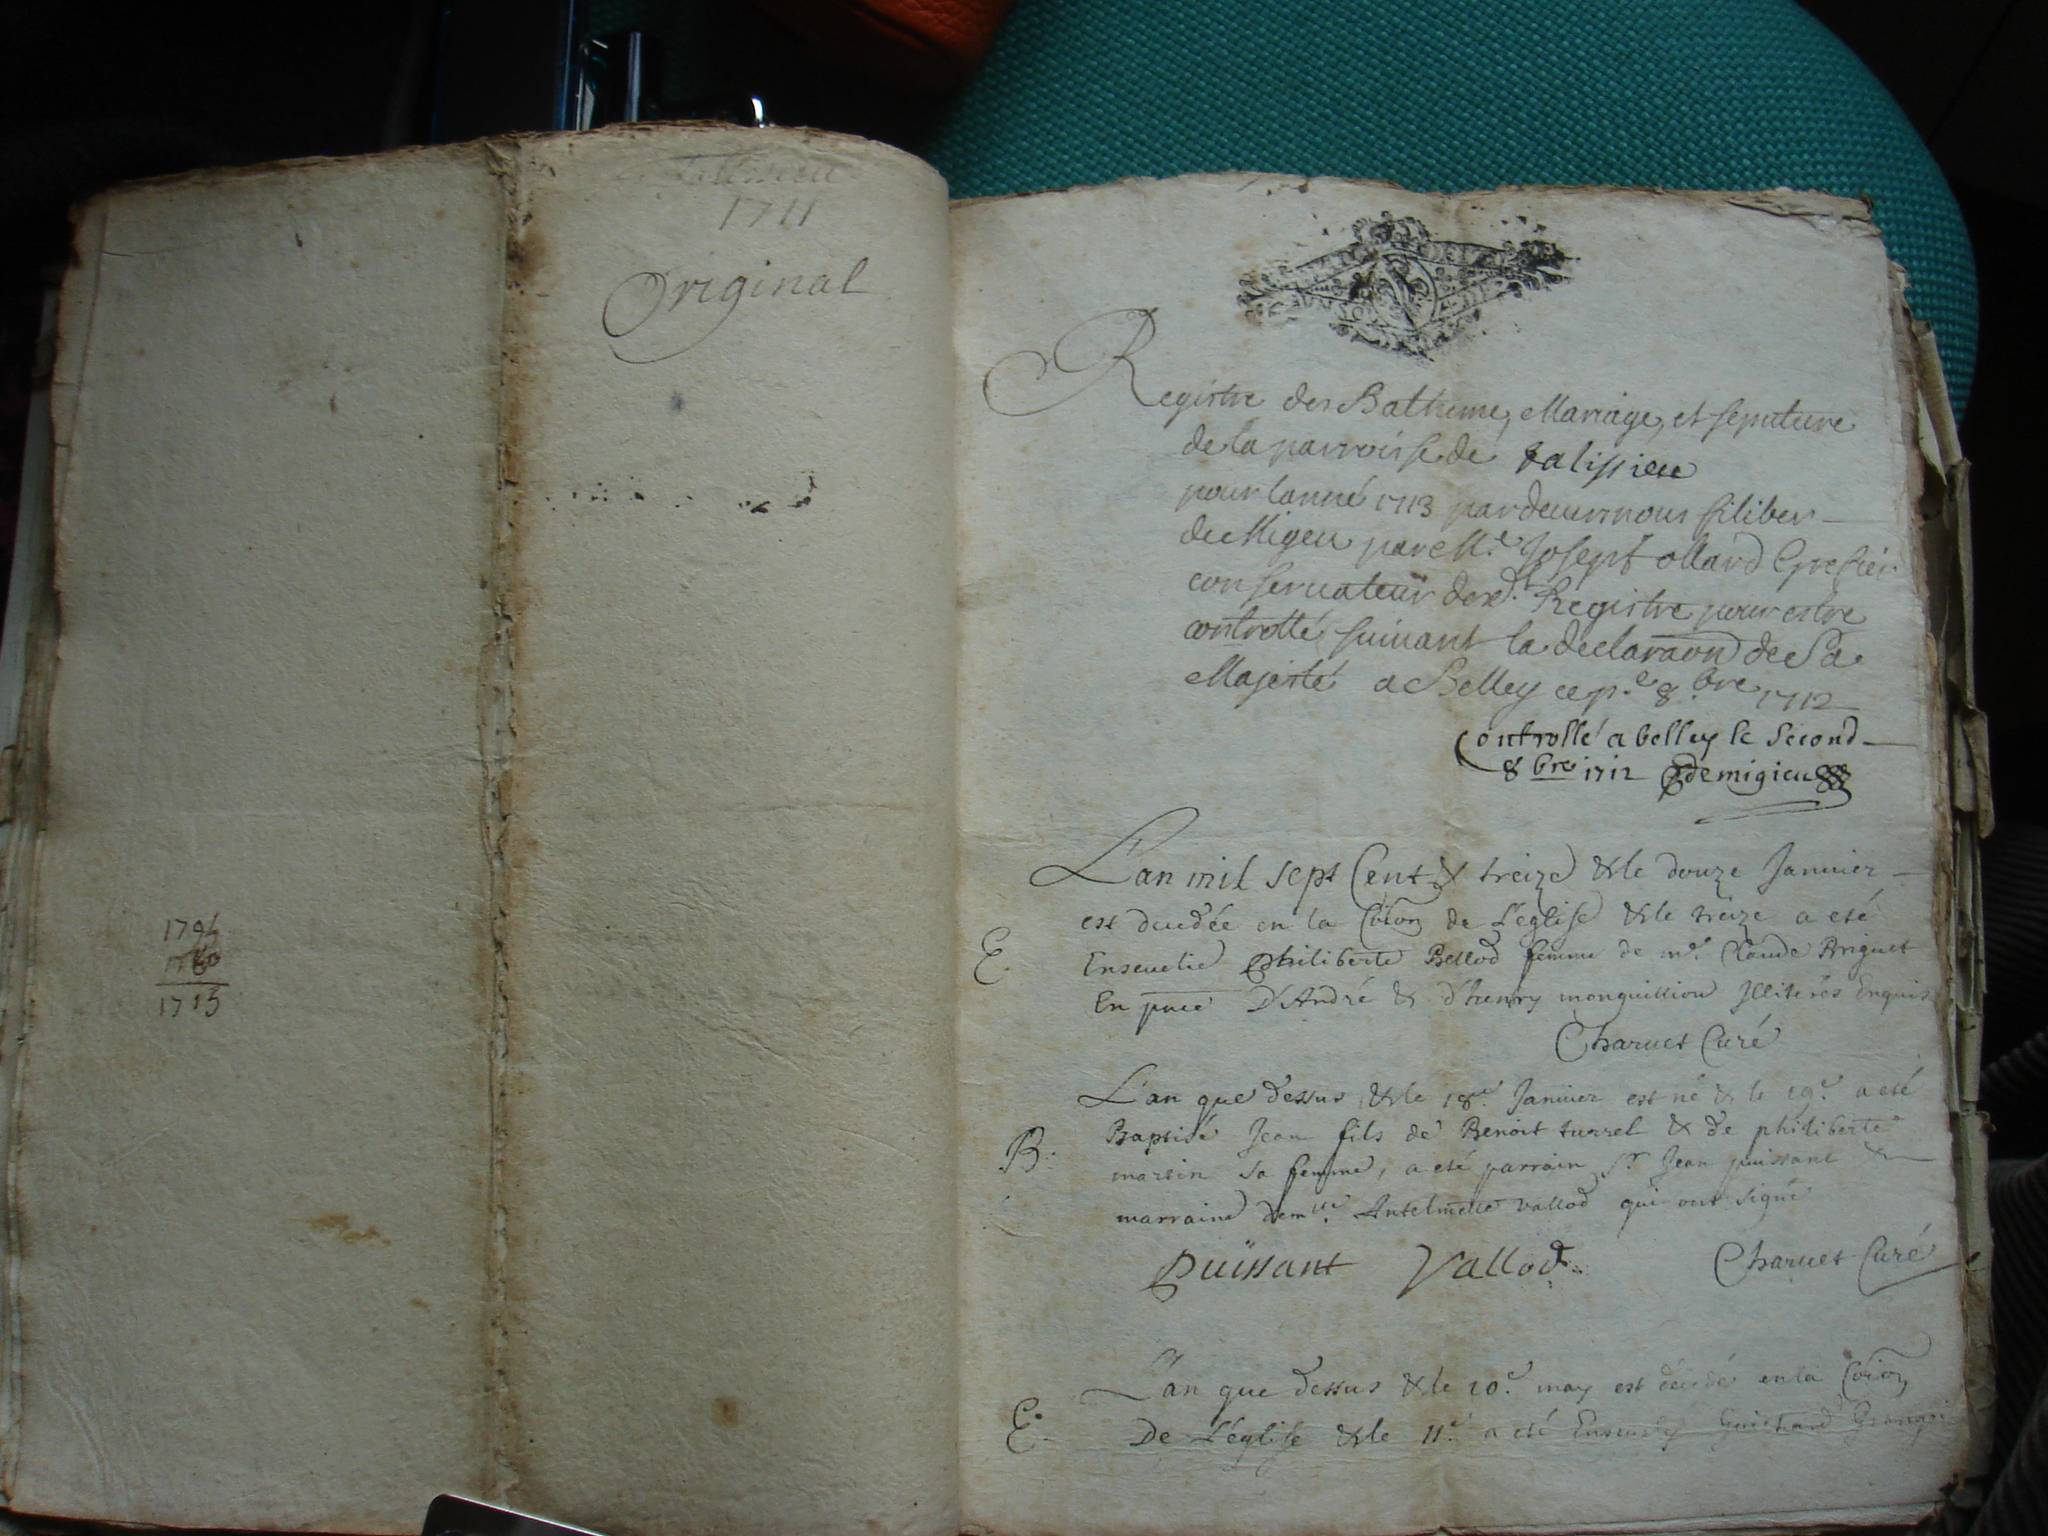 Talissieu
1711
Original
1715
Registre des Batheme, Mariage, et sepulture
de la parroisse de talissieu
pour lanné 1713 pardevernous filiber
de Migeu par Me. Joseph ollard Grefier
conservateur desd. Registre pour estre
controllé suivant la declaraon de Sa
Majesté a Belley ce p.e 8.bre 1712
Controllé a belley le second
8bre 1712 demigieu
L'an mil sept Cent & treize & le douze Janvier
est decedée en la Coion de L'eglise & le treize a eté
E. Ensevelie Philiberte Bellod femme de mr. Claude Briguet
En pnce D'André & d'henry monguillion Illiterés Enquis
Charvet Curé
L'an que dessus & le 18e. Janvier est né & le 19e. a eté
B. Baptisé Jean fils de Benoit turrel & de philiberte
martin sa femme, a eté parrain Sr Jean puissant &
marraine dem.lle Antelmette vallod qui ont signé
Puissant Vallod Charvet Curé
L'an que dessus & le 10e. may est décédé en la Coion
E. De L'église & le 11e. a eté Ensevely Guichard